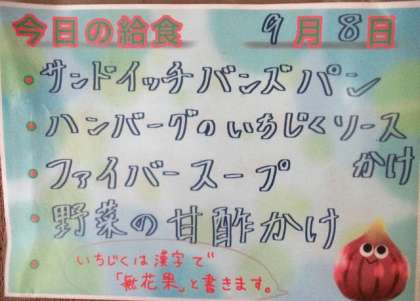 今日の給食 9月8日
サンドイッチバンズパン
ハンバーグのいちじくソース
かけ
ファイバースープ
野菜の甘酢かけ
いちじくは漢字で
「無花果」と書きます。